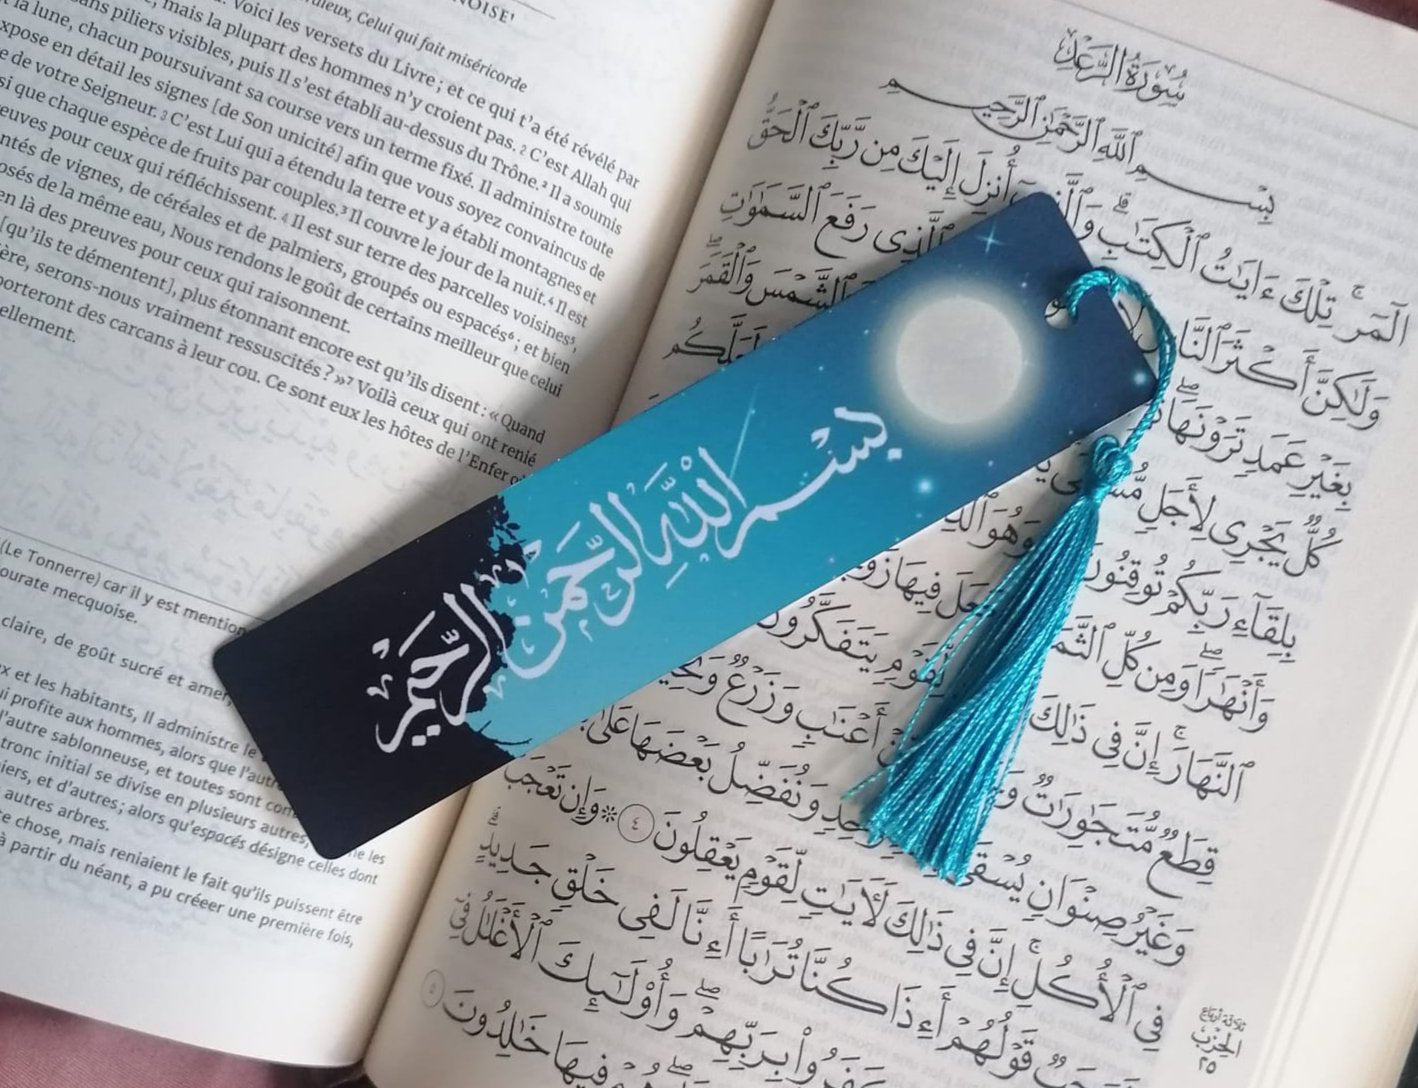 NOISE¹
Celui qui fait miséricorde
Voici les versets du Livre ; et ce qui t'a été révélé par
mais la plupart des hommes n'y croient pas. 2 C'est Allah qui
piliers visibles, puis Il s'est établi au-dessus du Trône.² Il a soumis
la lune, chacun poursuivant sa course vers un terme fixé. Il administre toute
expose en détail les signes [de Son unicité] afin que vous soyez convaincus de
de votre Seigneur. 3 C'est Lui qui a étendu la terre et y a établi montagnes et
si que chaque espèce de fruits par couples.³ Il couvre le jour de la nuit.⁴ Il est
pour ceux qui réfléchissent. 4 Il est sur terre des parcelles voisines⁵,
de vignes, de céréales et de palmiers, groupés ou espacés⁶ ; et bien
de la même eau, Nous rendons le goût de certains meilleur que celui
en là des preuves pour ceux qui raisonnent.
[qu'ils te démentent], plus étonnant encore est qu'ils disent : « Quand
serons-nous vraiment ressuscités ? »⁷ Voilà ceux qui ont renié
porteront des carcans à leur cou. Ce sont eux les hôtes de l'Enfer
(Le Tonnerre) car il y est
mecquoise.
claire, de goût sucré et
et les habitants, Il administre le
profite aux hommes, alors que
l'autre sablonneuse, et toutes sont
tronc initial se divise en plusieurs autres,
et d'autres ; alors qu'espacés désigne celles dont
autres arbres.
chose, mais reniaient le fait qu'ils puissent être
à partir du néant, a pu créeer une première fois,
بسم الله الرحمن الرحيم
سُورَةُ الرَّعْدِ
بِسْمِ ٱللَّهِ ٱلرَّحْمَٰنِ ٱلرَّحِيمِ
الٓمٓر ۚ تِلْكَ ءَايَٰتُ ٱلْكِتَٰبِ ۗ أُنزِلَ إِلَيْكَ مِن رَّبِّكَ ٱلْحَقُّ
وَلَٰكِنَّ أَكْثَرَ ٱلَّذِى رَفَعَ ٱلسَّمَٰوَٰتِ
بِغَيْرِ عَمَدٍ تَرَوْنَهَا ٱلشَّمْسَ وَٱلْقَمَرَ
كُلٌّ يَجْرِى لِأَجَلٍ
بِلِقَآءِ رَبِّكُمْ تُوقِنُونَ وَهُوَ
وَأَنْهَٰرًا ۖ وَمِن كُلِّ فِيهَا
ٱلنَّهَارَ ۚ إِنَّ فِى ذَٰلِكَ لِّقَوْمٍ يَتَفَكَّرُونَ
قِطَعٌ مُّتَجَٰوِرَٰتٌ أَعْنَٰبٍ وَزَرْعٌ
وَغَيْرُ صِنْوَانٍ يُسْقَىٰ وَنُفَضِّلُ بَعْضَهَا عَلَىٰ
فِى ٱلْأُكُلِ ۚ إِنَّ فِى ذَٰلِكَ لَءَايَٰتٍ لِّقَوْمٍ يَعْقِلُونَ ٤ ۞ وَإِن تَعْجَبْ
قَوْلُهُمْ أَءِذَا كُنَّا تُرَٰبًا أَءِنَّا لَفِى خَلْقٍ جَدِيدٍ
بِرَبِّهِمْ ۖ وَأُو۟لَٰٓئِكَ ٱلْأَغْلَٰلُ فِىٓ
فِيهَا خَٰلِدُونَ ٥
الحزب
٢٥